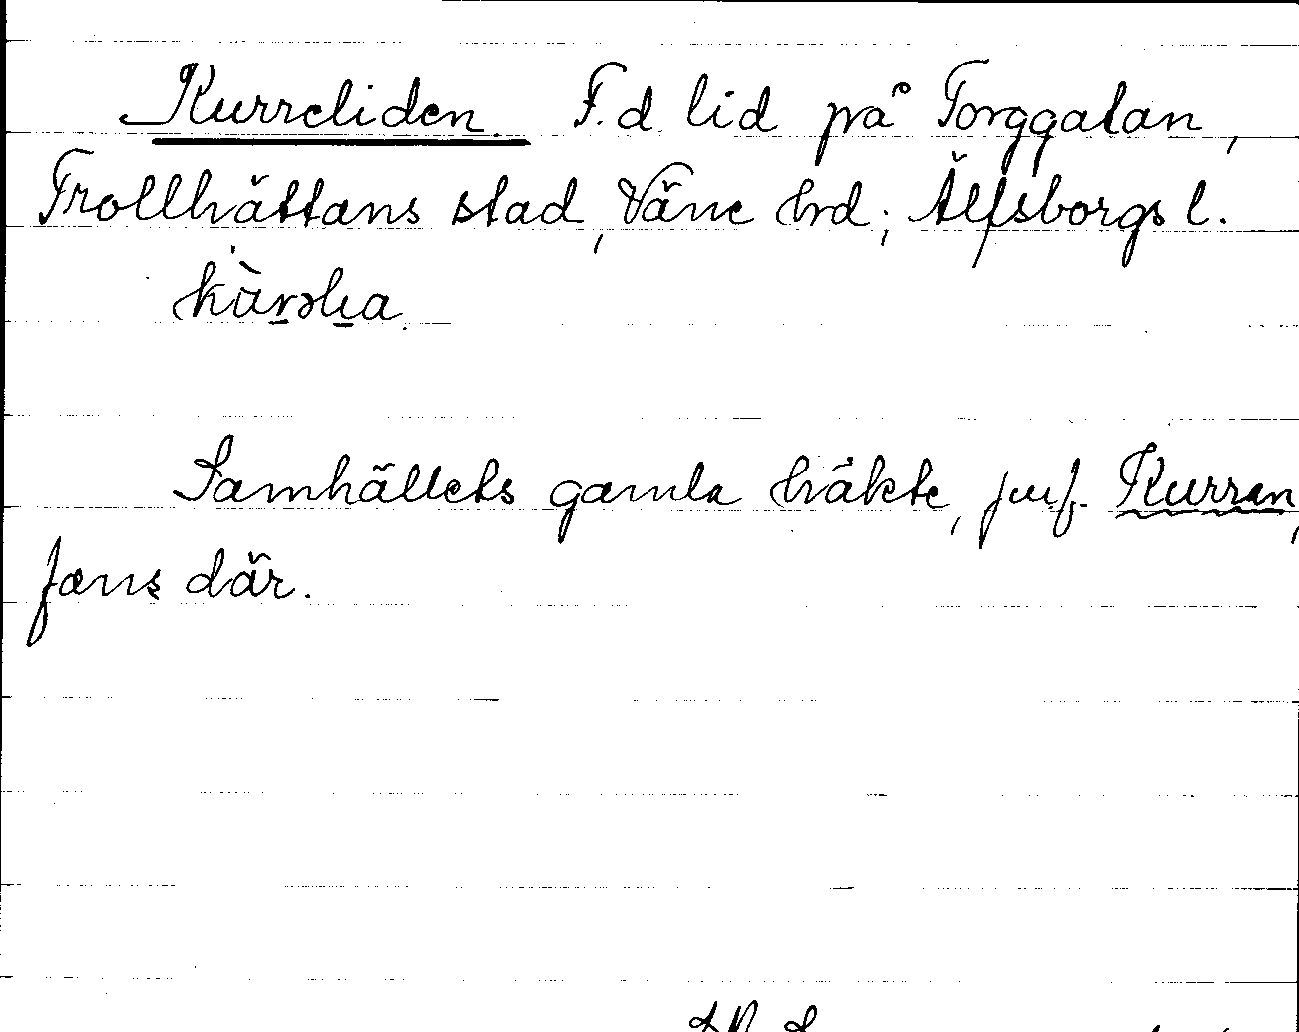 Kurreliden. F.d. lid på Torggatan,
Trollhättans stad, Väne hrd; Älfsborgs l.
Samhällets gamla häkte, jmf. Kurran,
fans där.